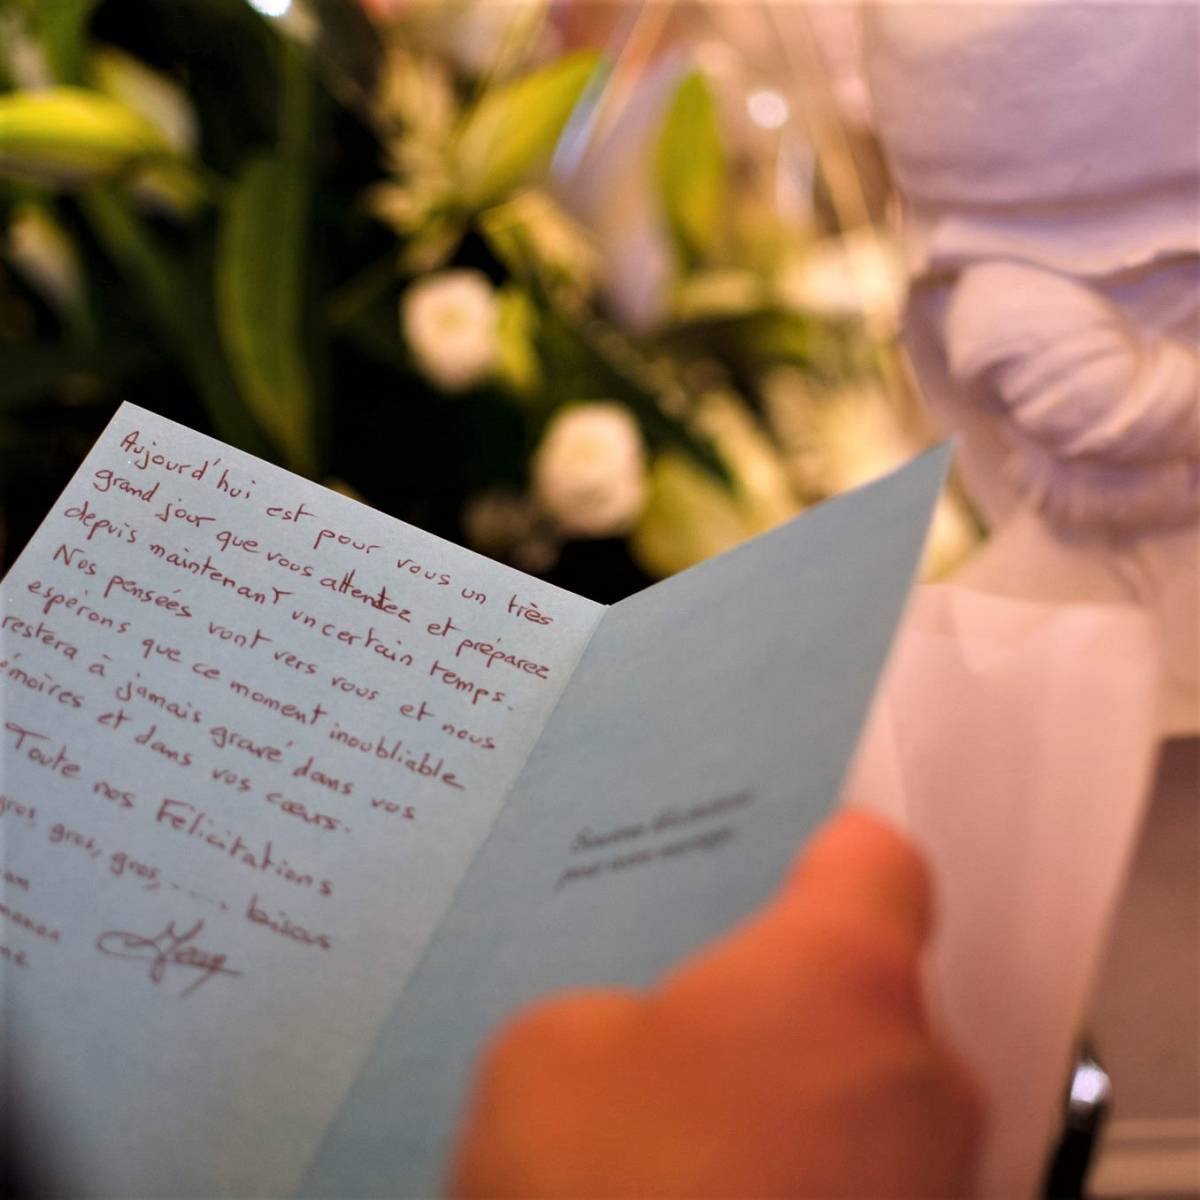 Aujourd'hui est pour vous un très
grand jour que vous attendez et préparez
depuis maintenant un certain temps.
Nos pensées vont vers vous et nous
espérons que ce moment inoubliable
restera à jamais gravé dans vos
mémoires et dans vos cœurs.
Toute nos Félicitations
gros, gros, gros, ..... bisous